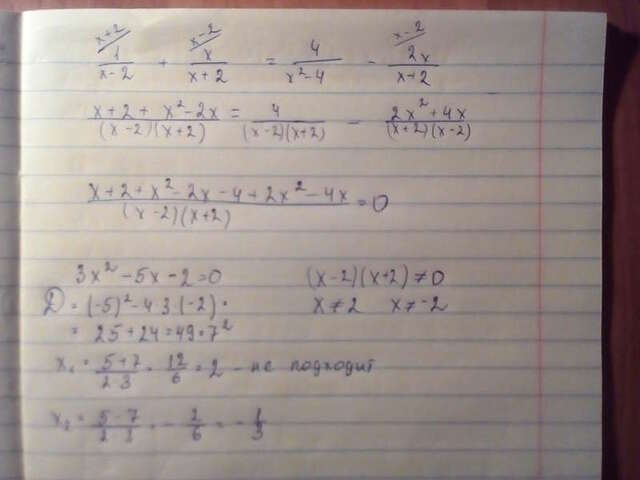 x+2 x-2 x-2
1/(x-2) + x/(x+2) = 4/(x²-4) - 2x/(x+2)
(x+2+x²-2x)/((x-2)(x+2)) = 4/((x-2)(x+2)) - (2x²+4x)/((x+2)(x-2))
(x+2+x²-2x-4+2x²-4x)/((x-2)(x+2)) = 0
3x²-5x-2=0 (x-2)(x+2)≠0
D = (-5)²-4·3·(-2)= x≠2 x≠-2
= 25+24=49=7²
x₁ = (5+7)/(2·3) = 12/6 = 2 - не подходит
x₂ = (5-7)/(2·3) = -2/6 = -1/3